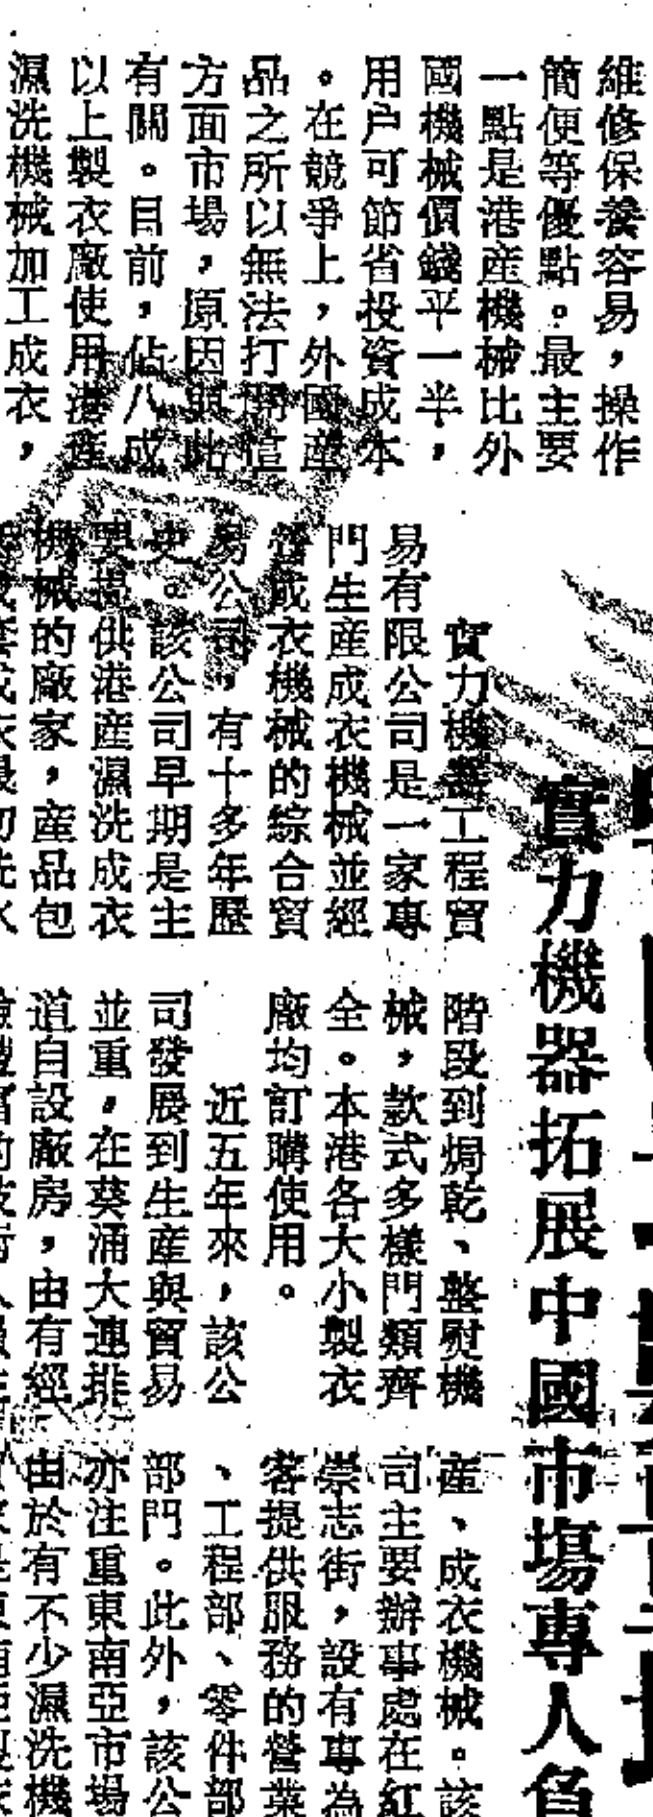 實力機器拓展中國市場專人
維修保養容易，操作
簡便等優點。最主要
一點是港産機械比外
國機械價錢平一半，
用户可節省投資成本
。在競爭上，外國産
品之所以無法打開這
方面市場，原因與此
有關。目前，佔八成
以上製衣廠使用港産
濕洗機械加工成衣，
實力機器工程貿
易有限公司是一家專
門生産成衣機械並經
營成衣機械的綜合貿
易公司，有十多年歷
史。該公司早期是主
要提供港産濕洗成衣
機械的廠家，産品包
階段到焗乾、整熨機
械，款式多樣門類齊
全。本港各大小製衣
廠均訂購使用。
近五年來，該公
司發展到生産與貿易
並重，在葵涌大連排
道自設廠房，由有經
産、成衣機械。該
司主要辦事處在紅
崇志街，設有專為
客提供服務的營業
、工程部、零件部
部門。此外，該公
亦注重東南亞市場
由於有不少濕洗機